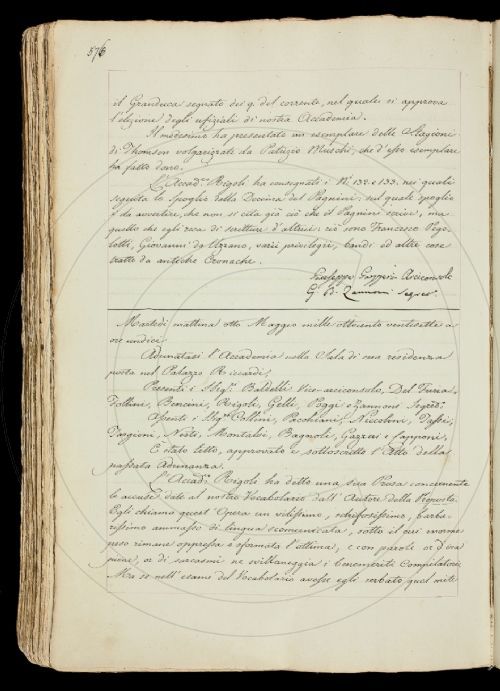 576
il Granduca segnato dei 9. del corrente, nel quale si approva
l'elezione degli ufiziali di nostra Accademia.
Il medesimo ha presentato un esemplare delle Stagioni
di Thomson volgarizzate da Patrizio Muschi, che d'esso esemplare
ha fatto dono.
L'Accad.co Rigoli ha consegnati i N.i 132. e 133. nei quali
seguita lo spoglio della Decima del Pagnini: sul quale spoglio
è da avvertire, che non si cita già ciò che il Pagnini scrive, ma
quello che egli reca di scritture d'altrui: ciò sono Francesco Pego-
lotti, Giovanni da Uzzano, varii privilegii, bandi ed altre cose
tratte da antiche Cronache.
Giuseppe Arciconsolo
G. B. Zannoni Segret.o
Martedì mattina otto Maggio mille ottocento ventisette a
ore undici.
Adunatasi l'Accademia nella Sala di sua residenza
posta nel Palazzo Riccardi;
Presenti i SS.ri Baldelli Vice-arciconsolo, Del Furia,
Follini, Bencini, Rigoli, Gelli, Poggi e Zannoni Segret.o
Assenti i SS.ri Collini, Pacchiani, Niccolini, Tassi,
Targioni, Nesti, Montalvi, Bagnoli, Gazzeri e Capponi,
È stato letto, approvato e sottoscritto l'Atto della
passata Adunanza.
L'Accad.co Rigoli ha detto una sua Prosa concernente
le accuse date al nostro Vocabolario dall'Autore della Proposta.
Egli chiama quest'Opera un vilissimo, schifosissimo, barba-
rissimo ammasso di lingua scomunicata, sotto il cui enorme
peso rimane oppressa e sformata l'ottima, e con parole or d'ira
piene, or di sarcasmi ne svillaneggia i benemeriti Compilatori.
Ma se nell'esame del Vocabolario avesse egli serbato quel mite